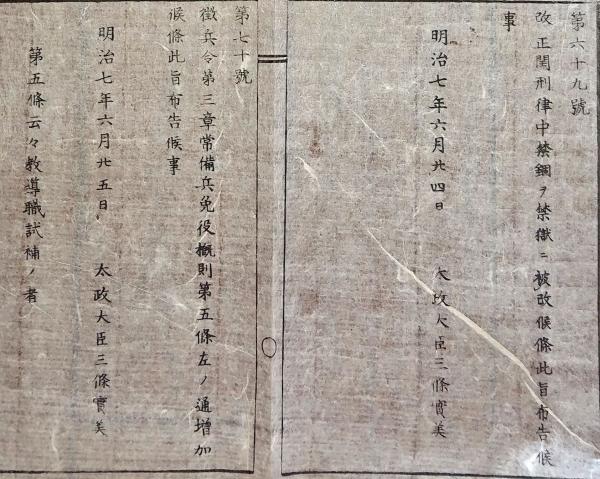 第六十九號
改正閏刑律中禁錮ヲ禁獄ニ被改候條此旨布告候
事
明治七年六月廿四日　太政大臣三條實美
第七十號
徴兵令第三章常備兵免役概則第五條左ノ通増加
候條此旨布告候事
明治七年六月廿五日　太政大臣三條實美
第五條云々教導職試補ノ者